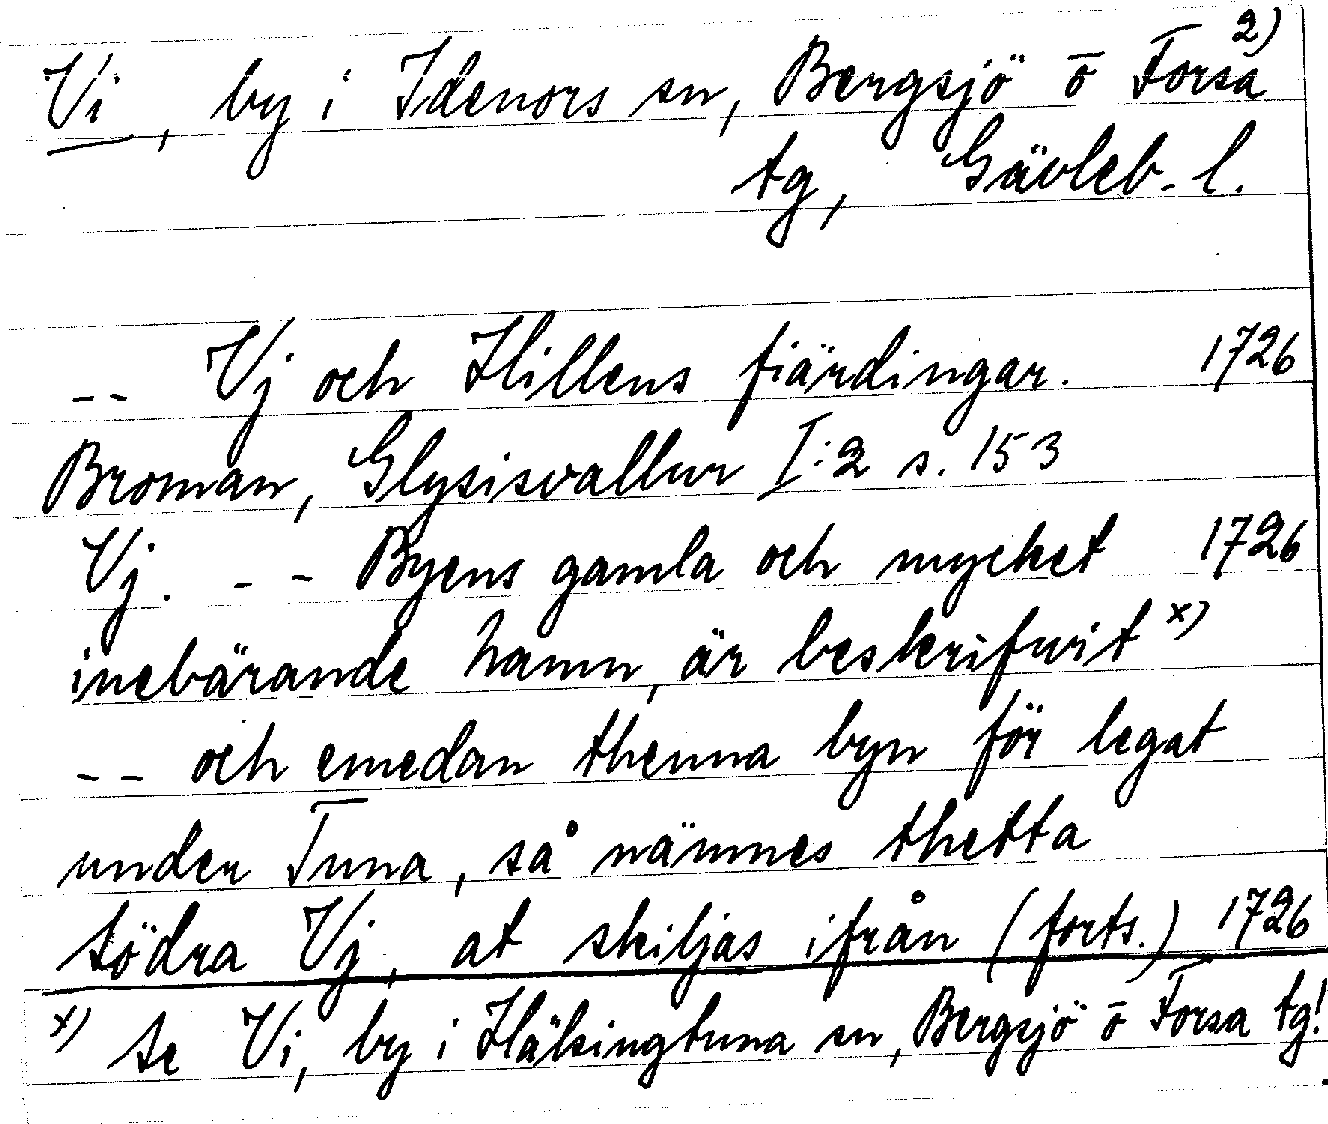 2)
Vi, by i Idenors sn, Bergsjö o Forsa
tg, Gävleb. l.
-- Vj och Hillens fiärdingar. 1726
Broman, Glysisvallur I:2 s. 153
Vj. -- Byens gamla och mycket 1726
inebärande namn, är beskrifwit x)
-- och emedan thenna byn för legat
under Tuna, så nämnes thetta
södra Vj, at skiljas ifrån (forts.) 1726
x) se Vi, by i Hälsingtuna sn, Bergsjö o Forsa tg!